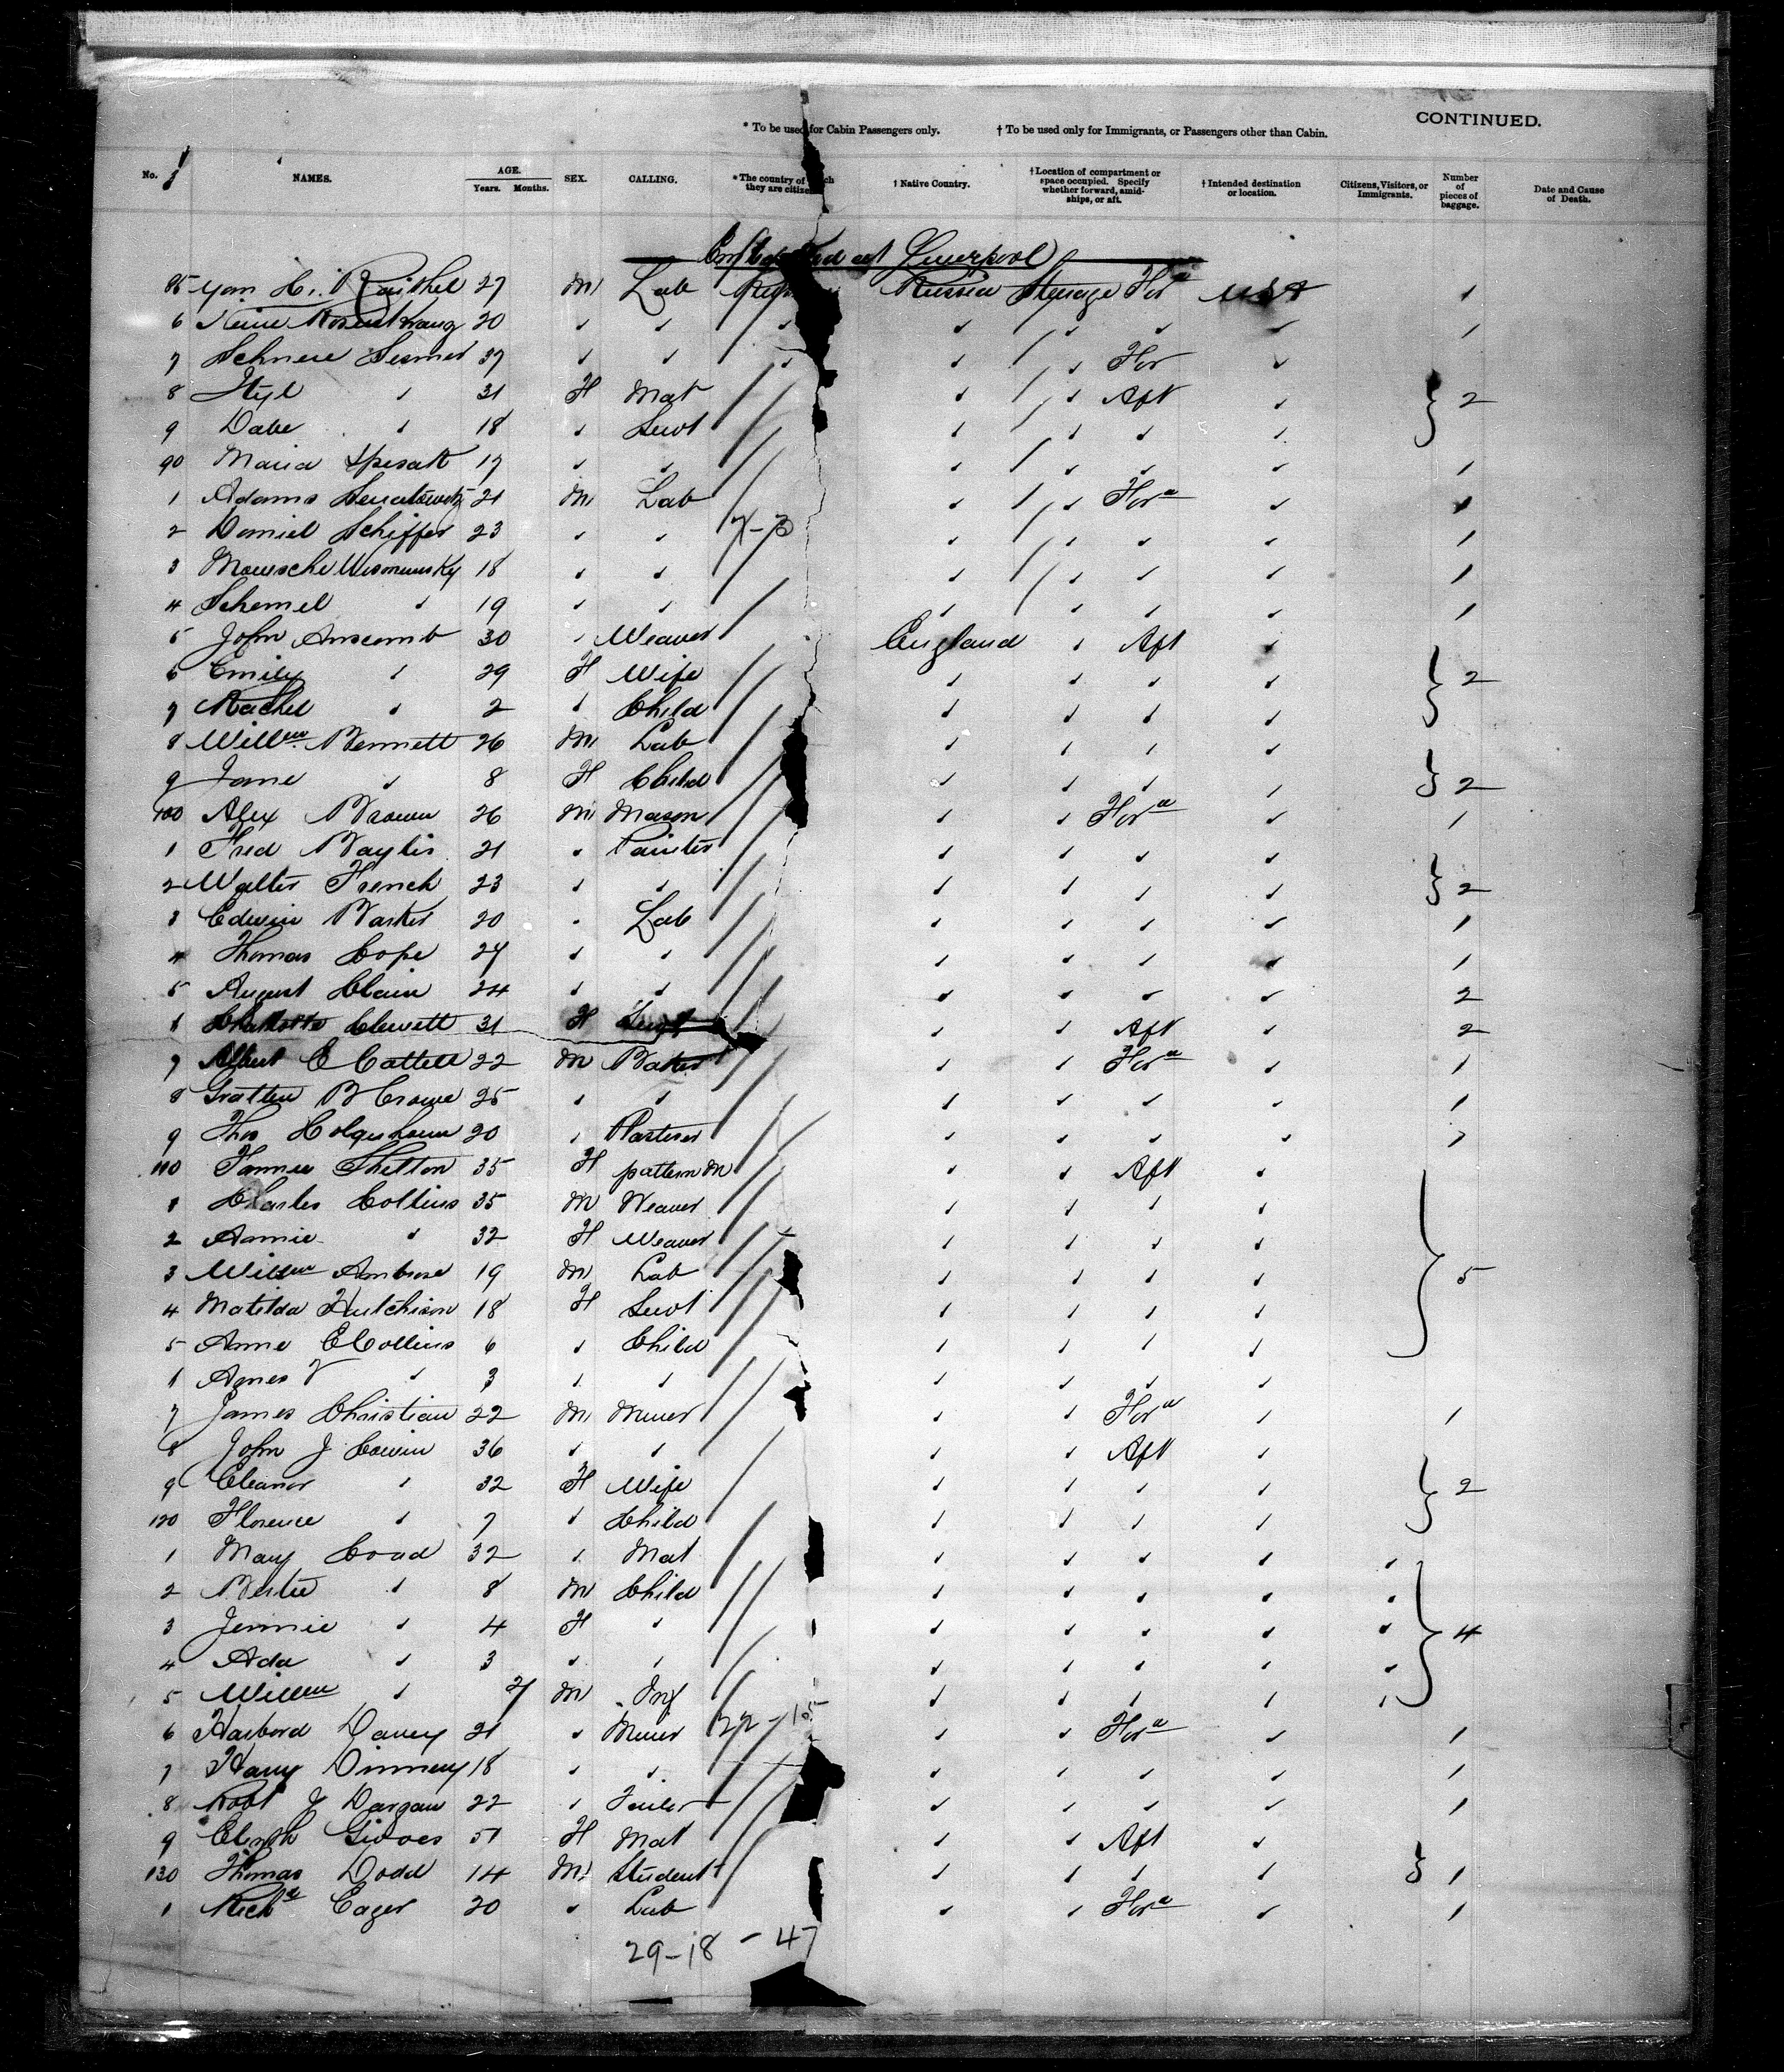 CONTINUED.
* To be used for Cabin Passengers only. † To be used only for Immigrants, or Passengers other than Cabin.
No. NAMES. AGE. Years. Months. SEX. CALLING. * The country of they are citizens † Native Country. † Location of compartment or space occupied. Specify whether forward, amidships, or aft. † Intended destination or location. Citizens, Visitors, or Immigrants. Number of pieces of baggage. Date and Cause of Death.
at Liverpool
85 27 M Lab Russia Steerage For^d USA 1
6 20 ✓ ✓ ✓ ✓ ✓ ✓ 1
7 37 ✓ ✓ ✓ ✓ ✓ For ✓
8 ✓ 31 F Mat ✓ ✓ Aft ✓ } 2
9 Dabe ✓ 18 ✓ Servt ✓ ✓ ✓ ✓
90 Maria 17 ✓ ✓ ✓ ✓ ✓ ✓ 1
1 Adams 21 M Lab ✓ ✓ For^d ✓ 1
2 Daniel Schiffer 23 ✓ ✓ 7-3 ✓ ✓ ✓ ✓ 1
3 18 ✓ ✓ ✓ ✓ ✓ ✓ 1
4 Schemel ✓ 19 ✓ ✓ ✓ ✓ ✓ ✓ 1
5 John Anscomb 30 ✓ Weaver England ✓ Aft ✓
6 Emily ✓ 29 F Wife ✓ ✓ ✓ ✓ } 2
7 Rachel ✓ 2 ✓ Child ✓ ✓ ✓ ✓
8 Will^m. Bennett 26 M Lab ✓ ✓ ✓ ✓
9 Jane ✓ 8 F Child ✓ ✓ ✓ ✓ } 2
100 Alex Brown 26 M Mason ✓ ✓ For^d ✓ 1
1 Fred Baylis 21 ✓ Painter ✓ ✓ ✓ ✓
2 Walter French 23 ✓ ✓ ✓ ✓ ✓ ✓ } 2
3 Edwin Barker 20 ✓ Lab ✓ ✓ ✓ ✓ 1
4 Thomas Cope 24 ✓ ✓ ✓ ✓ ✓ ✓ 1
5 August Clain 24 ✓ ✓ ✓ ✓ ✓ ✓ 2
6 Charlotte Clewett 31 F Servt ✓ ✓ Aft ✓ 2
7 Albert E Cottell 22 M Baker ✓ ✓ For^d ✓ 1
8 Grattan B Crowe 25 ✓ ✓ ✓ ✓ ✓ ✓ 1
9 Thos 20 ✓ Plasterer ✓ ✓ ✓ ✓ 1
110 Fannie Shelton 35 F pattern M ✓ ✓ Aft ✓
1 Charles Collins 35 M Weaver ✓ ✓ ✓ ✓
2 Annie ✓ 32 F Weaver ✓ ✓ ✓ ✓
3 Will^m Ambrose 19 M Lab ✓ ✓ ✓ ✓ } 5
4 Matilda Hutchison 18 F Servt ✓ ✓ ✓ ✓
5 Anne E Collins 6 ✓ Child ✓ ✓ ✓ ✓
6 Agnes V ✓ 3 ✓ ✓ ✓ ✓ ✓ ✓
7 James Christian 22 M Miner ✓ ✓ For^d ✓ 1
8 John J Cowin 36 ✓ ✓ ✓ ✓ Aft ✓
9 Eleanor ✓ 32 F Wife ✓ ✓ ✓ ✓ } 2
120 Florence ✓ 7 ✓ Child ✓ ✓ ✓ ✓
1 Mary Coad 32 ✓ Mat ✓ ✓ ✓ ✓ ✓
2 Bertie ✓ 8 M Child ✓ ✓ ✓ ✓ ✓
3 Jennie ✓ 4 F ✓ ✓ ✓ ✓ ✓ ✓ } 4
4 Ada ✓ 3 ✓ ✓ ✓ ✓ ✓ ✓ ✓
5 Will^m ✓ M Inf ✓ ✓ ✓ ✓ ✓
6 Harbord Davey 21 ✓ Miner 22-105 ✓ ✓ For^d ✓ 1
7 Harry Dinney 18 ✓ ✓ ✓ ✓ ✓ ✓ 1
8 Robt J Dargan 22 ✓ Tailor ✓ ✓ ✓ ✓ 1
9 51 F Mat ✓ ✓ Aft ✓
130 Thomas Dodd 14 M Student ✓ ✓ ✓ ✓ } 1
1 Rich^d Eager 20 ✓ Lab ✓ ✓ For^d ✓ 1
29-18 - 47